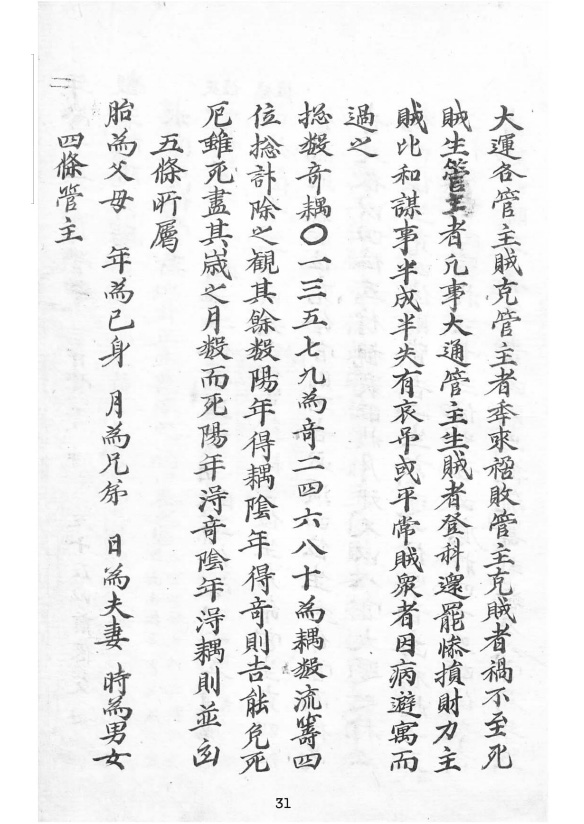 大運各管主賊克管主者奉求稻敗管主克賊者禍不至死
賊生管主者凡事大通管主生賊者登科還罷慘損財力主
賊比和謀事半成半失有哀吊或平常賊衆者因病避寓而
過之
捴数竒耦〇一三五七九為竒二四六八十為耦数流籌四
位捴計除之觀其餘数陽年得耦陰年得竒則吉能免死
厄雖死盡其歲之月数而死陽年淂竒陰年淂耦則並凶
五條所屬
胎為父母 年為已身 月為兄弟 日為夫妻 時為男女
四條管主
31